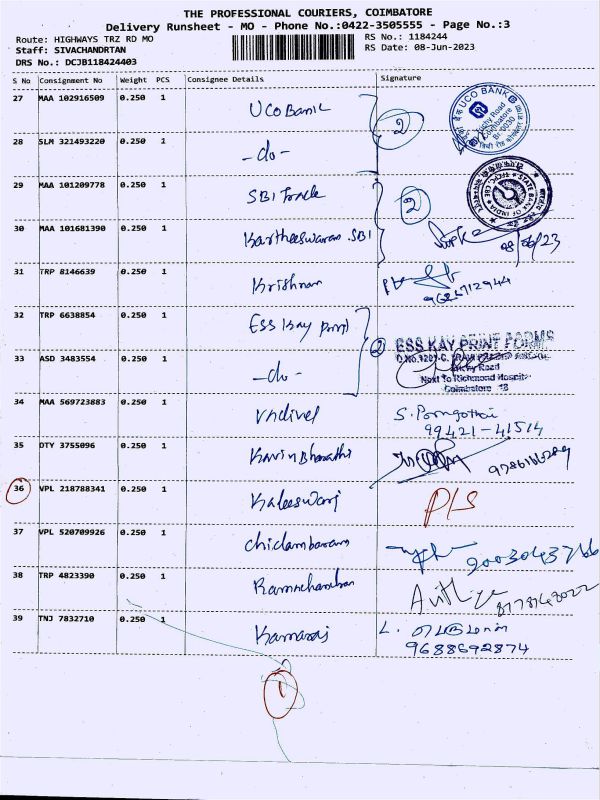 THE PROFESSIONAL COURIERS, COIMBATORE
Delivery Runsheet - MO - Phone No.:0422-3505555 - Page No.:3
Route: HIGHWAYS TRZ RD MO
RS No.: 1184244
Staff: SIVACHANDRTAN
RS Date: 08-Jun-2023
DRS No.: DCJB118424403
S No Consignment No Weight PCS Consignee Details Signature
27 MAA 102916509 0.250 1 UCO Bank 2 UCO BANK
28 SLM 321493220 0.250 1 -do-
29 MAA 101209778 0.250 1 SBI Trade 2 STATE BANK OF INDIA
30 MAA 101681390 0.250 1 Kartheeswaran .SBI 08/06/23
31 TRP 8146639 0.250 1 Krishnan
32 TRP 6638854 0.250 1 ESS Kay Print 2 ESS KAY PRINT FORMS
33 ASD 3483554 0.250 1 -do-
Trichy Road
Next To Richmond Hospital
Coimbatore 18
34 MAA 569723883 0.250 1 Vadivel S. Pongothai
99421-41514
35 DTY 3755096 0.250 1 Kavin Bharathi
36 VPL 218788341 0.250 1 Kaleeswari P/S
37 VPL 520709926 0.250 1 Chidambaram 9003043766
38 TRP 4823390 0.250 1 Ramachandran
39 TNJ 7832710 0.250 1 Kamaraj L.
9688692874
1